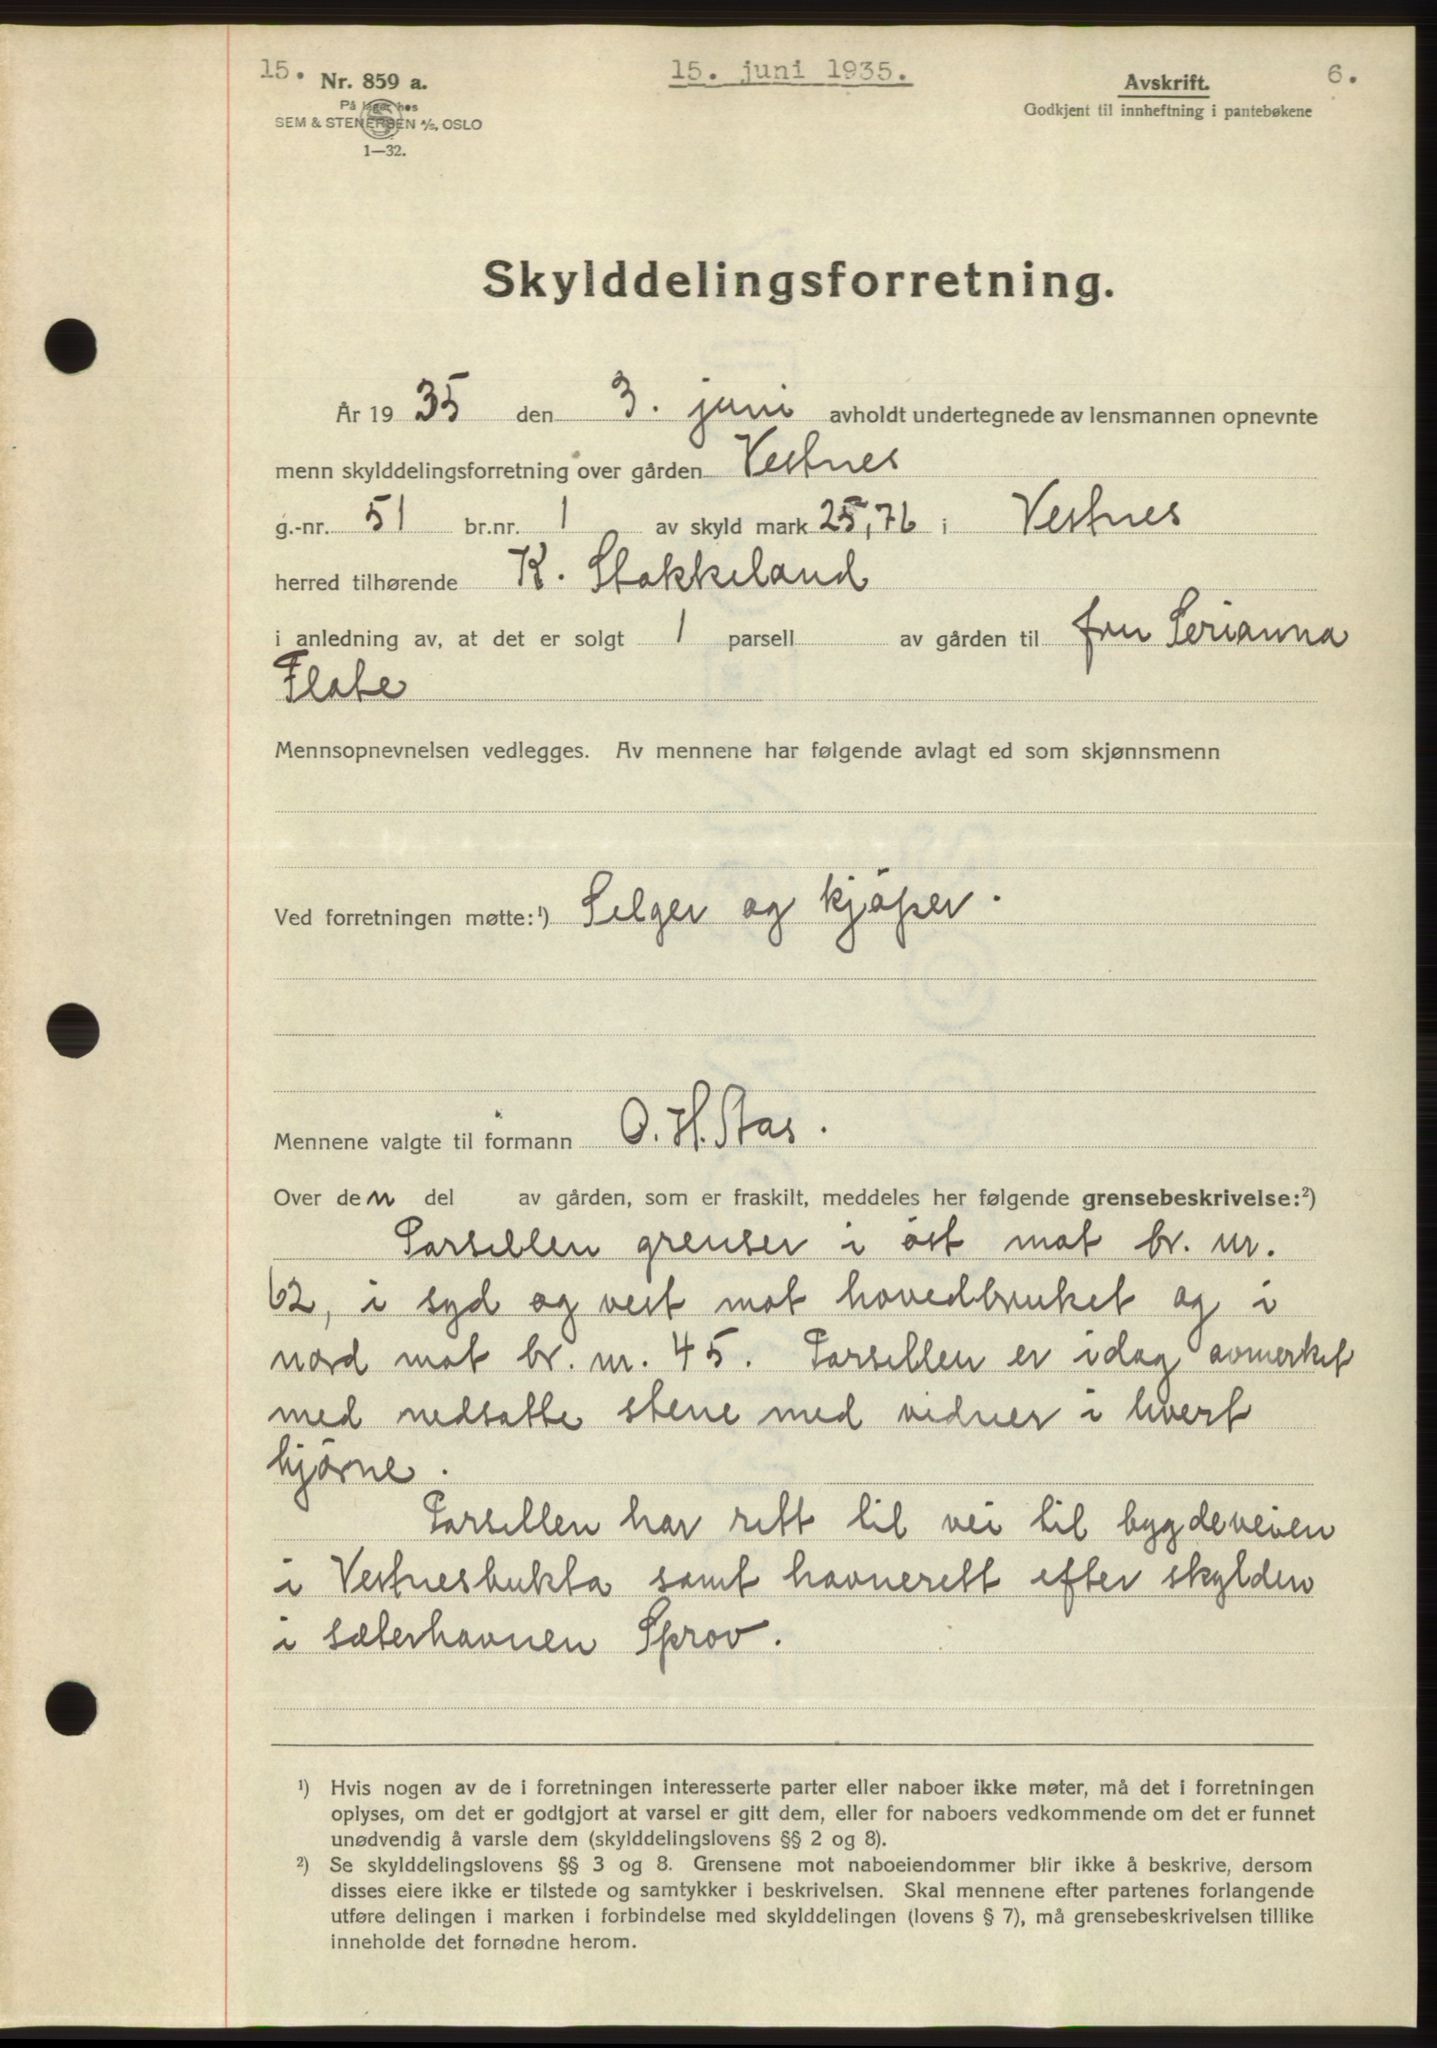 15. 15. juni 1935. 6.
Nr. 859 a. Avskrift.
På lager hos
SEM & STENERSEN A/S, OSLO Godkjent til innheftning i pantebøkene
1—32.
Skylddelingsforretning.
År 1935 den 3. juni avholdt undertegnede av lensmannen opnevnte
menn skylddelingsforretning over gården Vestnes
g.-nr. 51 br.nr. 1 av skyld mark 25,76 i Vestnes
herred tilhørende K. Stokkeland
i anledning av, at det er solgt 1 parsell av gården til fru Serianna
Flate
Mennsopnevnelsen vedlegges. Av mennene har følgende avlagt ed som skjønnsmenn
Ved forretningen møtte:¹) Selger og kjøper.
Mennene valgte til formann O. H. Stas.
Over den del av gården, som er fraskilt, meddeles her følgende grensebeskrivelse:²)
Parsellen grenser i øst mot br. nr.
62, i syd og vest mot hovedbruket og i
nord mot br. nr. 45. Parsellen er idag avmerket
med nedsatte stene med vidner i hvert
hjørne.
Parsellen har rett til vei til bygdeveien
i Vestnesbukta samt havnerett efter skylden
i sæterhavnen Sprov.
¹) Hvis nogen av de i forretningen interesserte parter eller naboer ikke møter, må det i forretningen
oplyses, om det er godtgjort at varsel er gitt dem, eller for naboers vedkommende om det er funnet
unødvendig å varsle dem (skylddelingslovens §§ 2 og 8).
²) Se skylddelingslovens §§ 3 og 8. Grensene mot naboeiendommer blir ikke å beskrive, dersom
disses eiere ikke er tilstede og samtykker i beskrivelsen. Skal mennene efter partenes forlangende
utføre delingen i marken i forbindelse med skylddelingen (lovens § 7), må grensebeskrivelsen tillike
inneholde det fornødne herom.